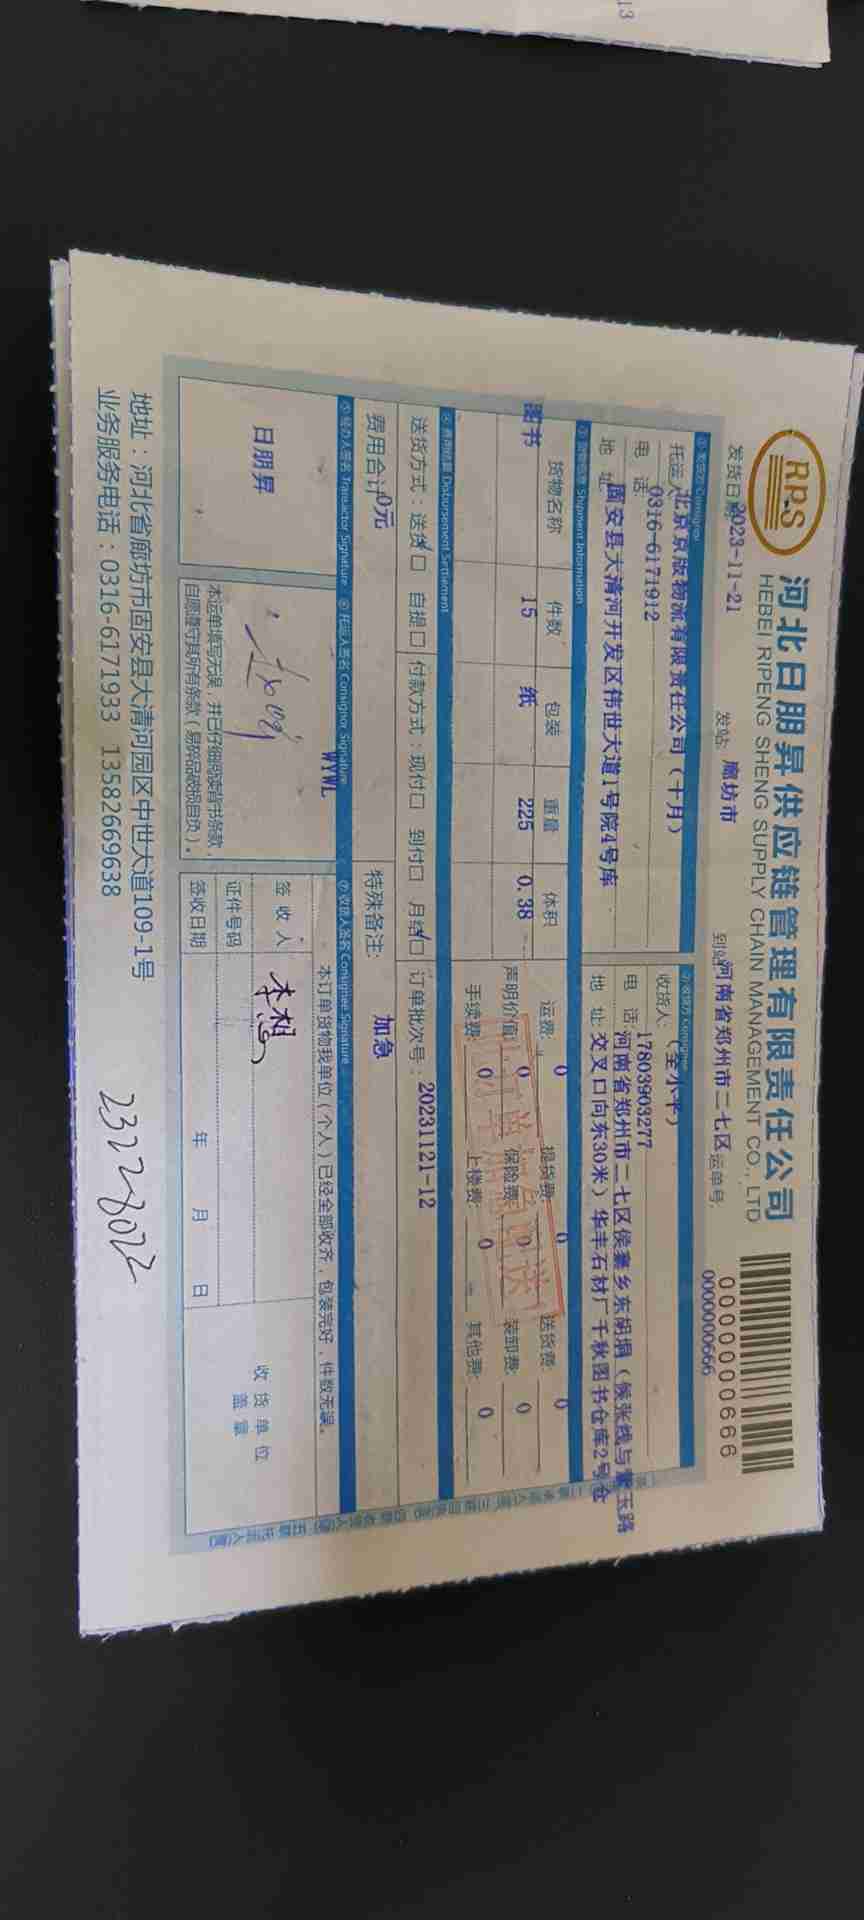 13
RPS
河北日朋昇供应链管理有限责任公司
HEBEI RIPENG SHENG SUPPLY CHAIN MANAGEMENT CO., LTD
0000000666
0000000666
发货日期 2023-11-21 发站: 廊坊市 到站 河南省郑州市二七区 运单号:
①发货方 Consignor ②收货方 Consignee
托运人 北京京版物流有限责任公司(十月) 收货人: (全小平)
电 话 0316-6171912 电 话: 17803903277
地 址 固安县大清河开发区伟世大道1号院4号库 地 址: 河南省郑州市二七区侯寨乡东胡垌(候张线与玉路
交叉口向东30米)华丰石材厂千秋图书仓库2号仓
③货物信息 Shipment Information
货物名称 件数 包装 重量 体积 运费: 0 提货费: 0 送货费: 0
图书 15 纸 225 0.38 声明价值: 0 保险费: 0 装卸费: 0
手续费: 0 上楼费: 0 其他费: 0
④费用结算 Disbursement Settlement
送货方式:送货☑ 自提□ 付款方式:现付□ 到付□ 月结☑ 订单批次号: 20231121-12
费用合计 0元 特殊备注: 加急
⑤经办人签名 Transactor Signature ⑥托运人签名 Consignor Signature ⑦收货人签名 Consignee Signature
WYWL
本订单货物我单位(个人)已经全部收齐,包装完好,件数无误。
日朋昇
签收人 李想
证件号码
签收日期 年 月 日
收货单位
盖章
本运单填写无误,并已仔细阅读背书条款,
自愿遵守其所有条款(易碎品破损自负)。
地址:河北省廊坊市固安县大清河园区中世大道109-1号
业务服务电话:0316-6171933 13582669638